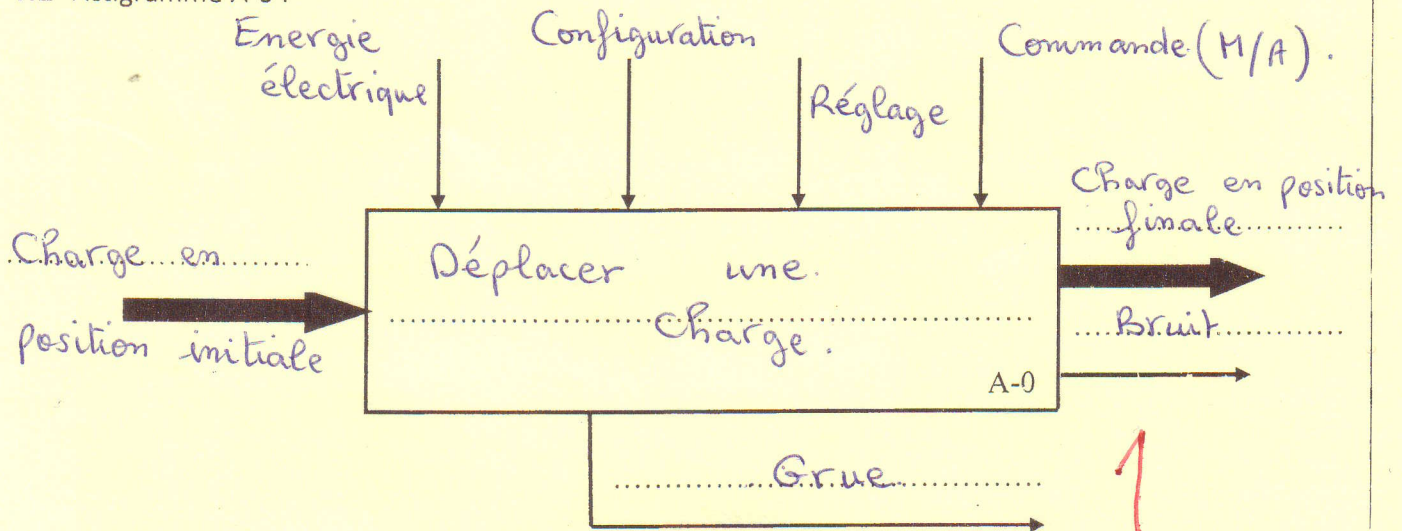 Actigramme A-0 :
Energie
électrique
Configuration
Réglage
Commande (M/A).
Charge en
position initiale
Déplacer une.
Charge.
A-0
Charge en position
finale
Bruit
Grue
1